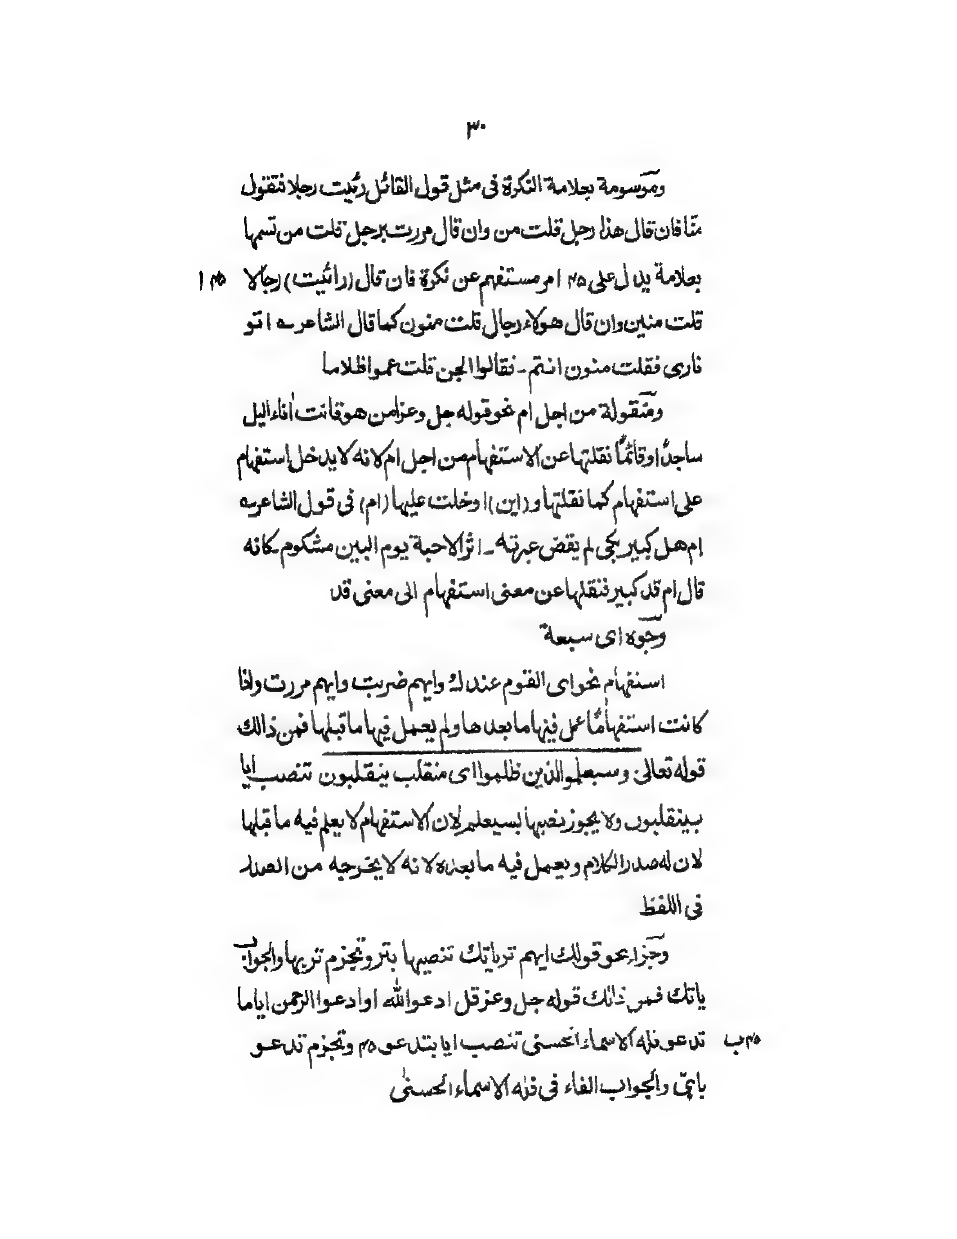 ٣٠
وموسومة بعلامة النكرة فى مثل قول القائل رئيت رجلا فتقول
منا فان قال هذا رجل قلت من وان قال مررت برجل قلت من تسمها
بعلامة يدل على ٢٥ ا مر مستفهم عن نكرة فان قال (رائيت) رجالا ٢٥ ا
قلت منين وان قال هولاء رجال قلت منون كما قال الشاعر ـه اتو
نارى فقلت منون انتم ـ فقالوا الجن قلت عموا ظلاما
ومنقولة من اجل ام نحو قوله جل وعز امن هو قانت اٰناء اليل
ساجدًا وقائمًا نقلتها عن الاستفهام من اجل ام لانه لا يدخل استفهام
على استفهام كما نقلتها و (اين) ا دخلت عليها (ام) فى قول الشاعر ـه
ام هل كبير بكى لم يقض عبرته ـ اثر الاحبة يوم البين مشكوم ـ كانه
قال ام قد كبير فنقلها عن معنى استفهام الى معنى قد
وجوه اى سبعة
استفهام نحو اى القوم عندك وايهم ضربت وايهم مررت واذا
كانت استفهامًا عمل فيها ما بعد ها ولم يعمل فيها ما قبلها فمن ذالك
قوله تعالىٰ وسيعلم الذين ظلموا اى منقلب ينقلبون تنصب ايا
بينقلبون ولا يجوز نصبها بسيعلم لان الاستفهام لا يعلم فيه ما قبلها
لان له صدر الكلام و يعمل فيه ما بعده لانه لا يخرجه من الصدر
فى اللفظ
وجزاء نحو قولك ايهم ترياتك تنصبها بتر وتجزم تر بها والجواب
ياتك فمن ذالك قوله جل وعز قل ادعوا الله او ادعوا الرحمن اياما
تدعو فله الاسماء الحسنى تنصب ايا بتدعو ٢٥ وتجزم تدعو ٢٥ ب
باىّ والجواب الفاء فى فله الاسماء الحسنىٰ